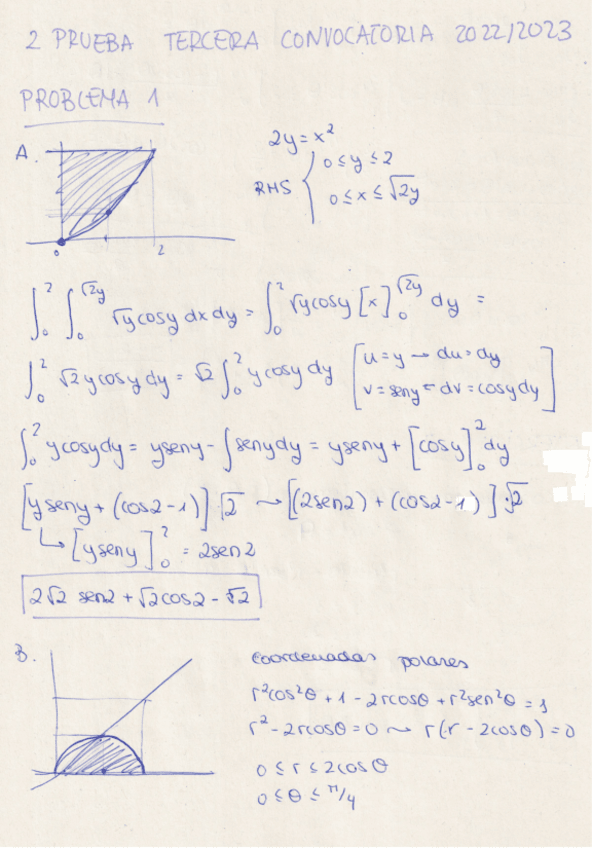 2 PRUEBA TERCERA CONVOCATORIA 2022/2023
PROBLEMA 1
A.
2y = x²
RHS { 0 ≤ y ≤ 2
0 ≤ x ≤ √2y
0 2
∫₀² ∫₀^√2y √y cosy dx dy = ∫₀² √y cosy [x]₀^√2y dy =
∫₀² √2 y cosy dy = √2 ∫₀² y cosy dy [u = y → du = dy
v = seny ← dv = cosy dy]
∫₀² y cosy dy = y seny - ∫ seny dy = y seny + [cosy]₀² dy
[y seny + (cos2 - 1)] √2 → [(2sen2) + (cos2 - 1)] · √2
↳ [y seny]₀² = 2sen2
2√2 sen2 + √2 cos2 - √2
B.
coordenadas polares
r²cos²θ + 1 - 2rcosθ + r²sen²θ = 1
r² - 2rcosθ = 0 → r(r - 2cosθ) = 0
0 ≤ r ≤ 2cosθ
0 ≤ θ ≤ π/4